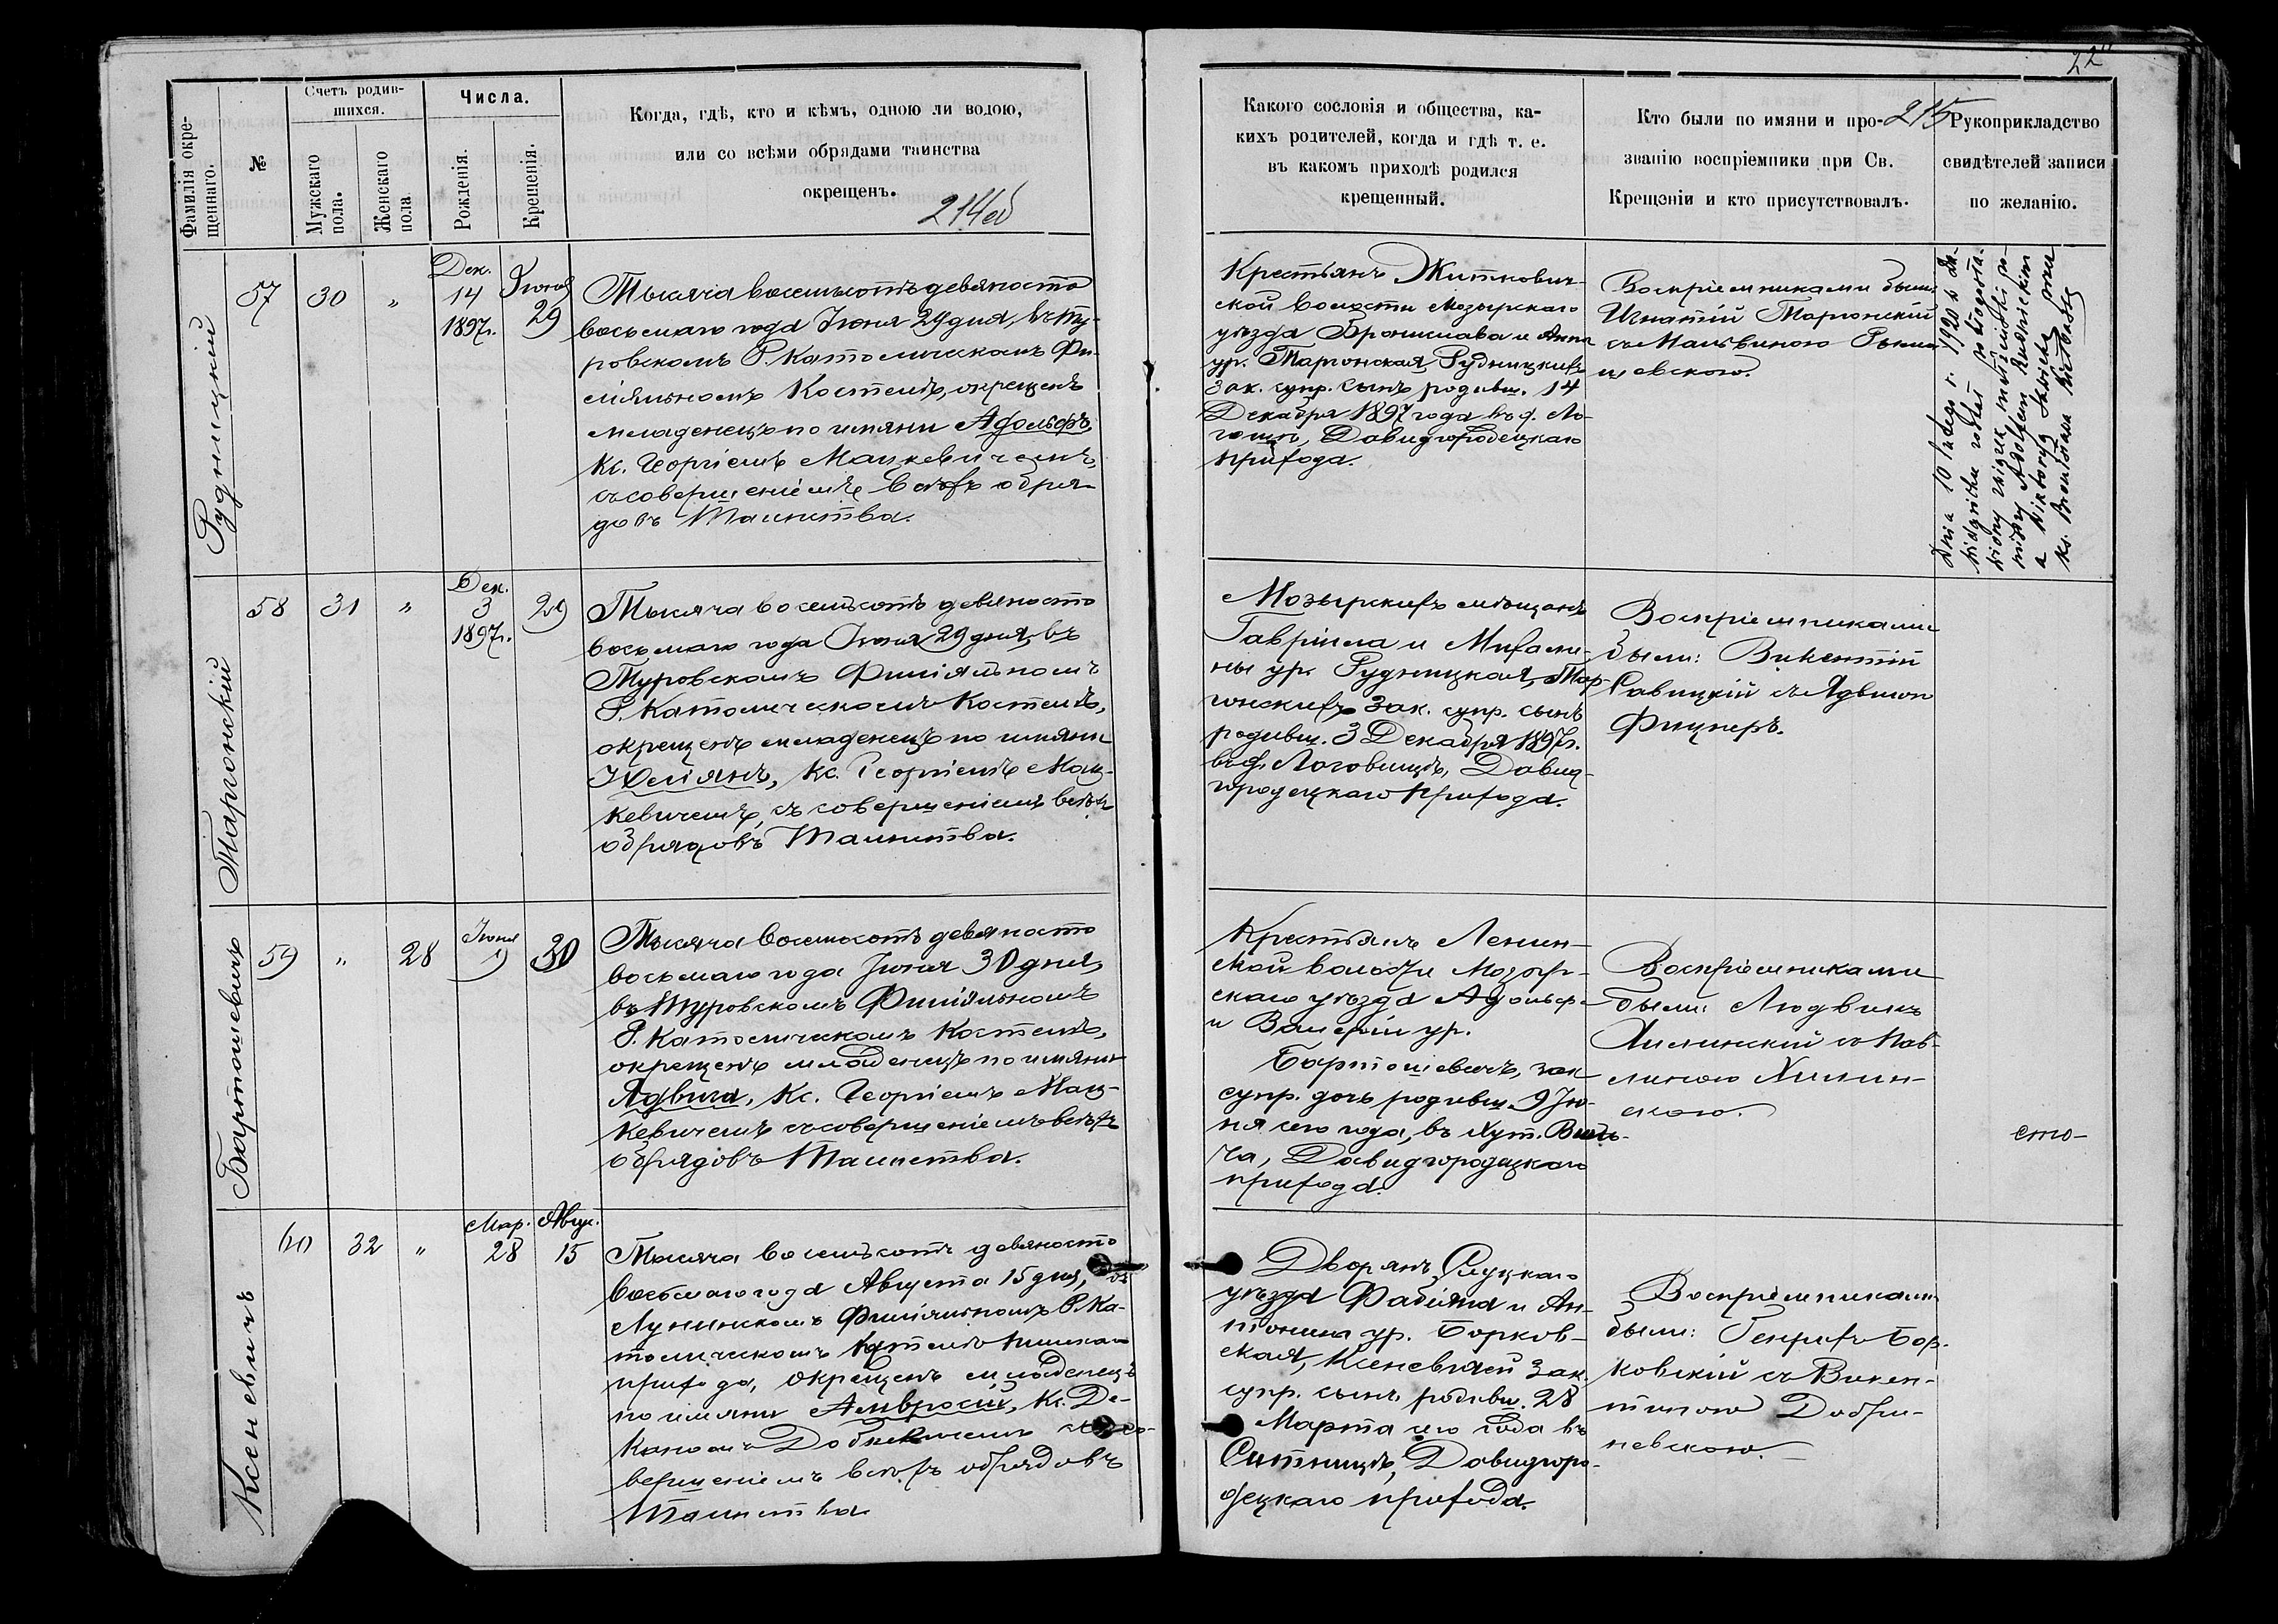 22
Фамилія окре-
щеннаго.
№
Счетъ родив-
шихся.
Мужскаго
пола.
Женскаго
пола
Числа.
Рожденія.
Крещенія.
Когда, гдѣ, кто и кѣмъ, одною ли водою,
или со всѣми обрядами таинства
окрещенъ.
214об
Какого сословія и общества, ка-
кихъ родителей, когда и гдѣ т. е.
въ какомъ приходѣ родился
крещенный.
Кто были по имяни и про-
званію воспріемники при Св.
Крещеніи и кто присутствовалъ.
215
Рукоприкладство
свидѣтелей записи
по желанію.
Рудницкій
57
30
„
Дек.
14
1897г.
Іюня
29
Тысяча восемьсотъ девяносто
восьмаго года Іюня 29 дня, въ Ту-
ровскомъ Р. Католическомъ Фи-
ліяльномъ Костелѣ, окрещенъ
младенецъ по имяни Адольфъ,
Кс. Георгіемъ Мацкевичемъ,
съ совершеніемъ всѣхъ обря-
довъ Таинства.
Крестьянъ Житкович-
ской волости Мозырскаго
уѣзда Бронислава и Анны
ур. Таргонская Рудницкихъ
зак. супр. сынъ родивш. 14
Декабря 1897 года въ д. Ло-
гощѣ, Давидгородецкаго
прихода.
Воспріемниками были:
Игнатій Таргонскій
съ Мальвиною
Dnia 10 lutego r. 1920 s
został pobłogosła-
wiony związek małżeński po-
między Adolfem Rudnickim
a Wiktoryą
ks.
Таргонскій
58
31
„
Дек.
3
1897г.
29
Тысяча восемьсотъ девяносто
восьмаго года Іюня 29 дня, въ
Туровскомъ Филіяльномъ
Р. Католическомъ Костелѣ,
окрещенъ младенецъ по имяни
Юліянъ, Кс. Георгіемъ Мац-
кевичемъ, съ совершеніемъ всѣхъ
обрядовъ Таинства.
Мозырскихъ мѣщанъ
Гавріила и Михали-
ны ур. Рудницкая, Тар-
гонскихъ зак. супр. сынъ
родивш. 3 Декабря 1897г.
въ ф. Логовищѣ, Давид-
городецкаго прихода.
Воспріемниками
были: Викентій
Савицкій съ Ядвигою
Фицнеръ.
Бартошевичъ
59
„
28
Іюня
9
30
Тысяча восемьсотъ девяносто
восьмаго года Іюня 30 дня,
въ Туровскомъ Филіяльномъ
Р. Католическомъ Костелѣ,
окрещенъ младенецъ по имяни
Ядвига, Кс. Георгіемъ Мац-
кевичемъ съ совершеніемъ всѣхъ
обрядовъ Таинства.
Крестьянъ Ленин-
ской волости Мозыр-
скаго уѣзда Адольфа
и Валеріи ур.
Бартошевичъ, зак.
супр. дочь родивш. 9 Ію-
ня сего года, въ хут.
Давидгородецкаго
прихода.
Воспріемниками
были: Людвикъ
Хилинскій съ Пав-
линою Хилин-
скою.
сто-
Ксеневичъ
60
32
„
Мар.
28
Авгус.
15
Тысяча восемьсотъ девяносто
восьмаго года Августа 15 дня, въ
Лунинскомъ Филіяльномъ Р. Ка-
толическомъ Костелѣ Пинскаго
прихода, окрещенъ младенецъ
по имяни Амвросій, Кс. Де-
каномъ съ со-
вершеніемъ всѣхъ обрядовъ
Таинства.
Дворянъ Слуцкаго
уѣзда Фабіяна и Ан-
тонины ур. Борков-
ская, Ксеневичей зак.
супр. сынъ родивш. 28
Марта сего года въ
Ситницѣ, Давидгоро-
децкаго прихода.
Воспріемниками
были: Генрихъ Бор-
ковскій съ Викен-
тиною Добри-
невскою.